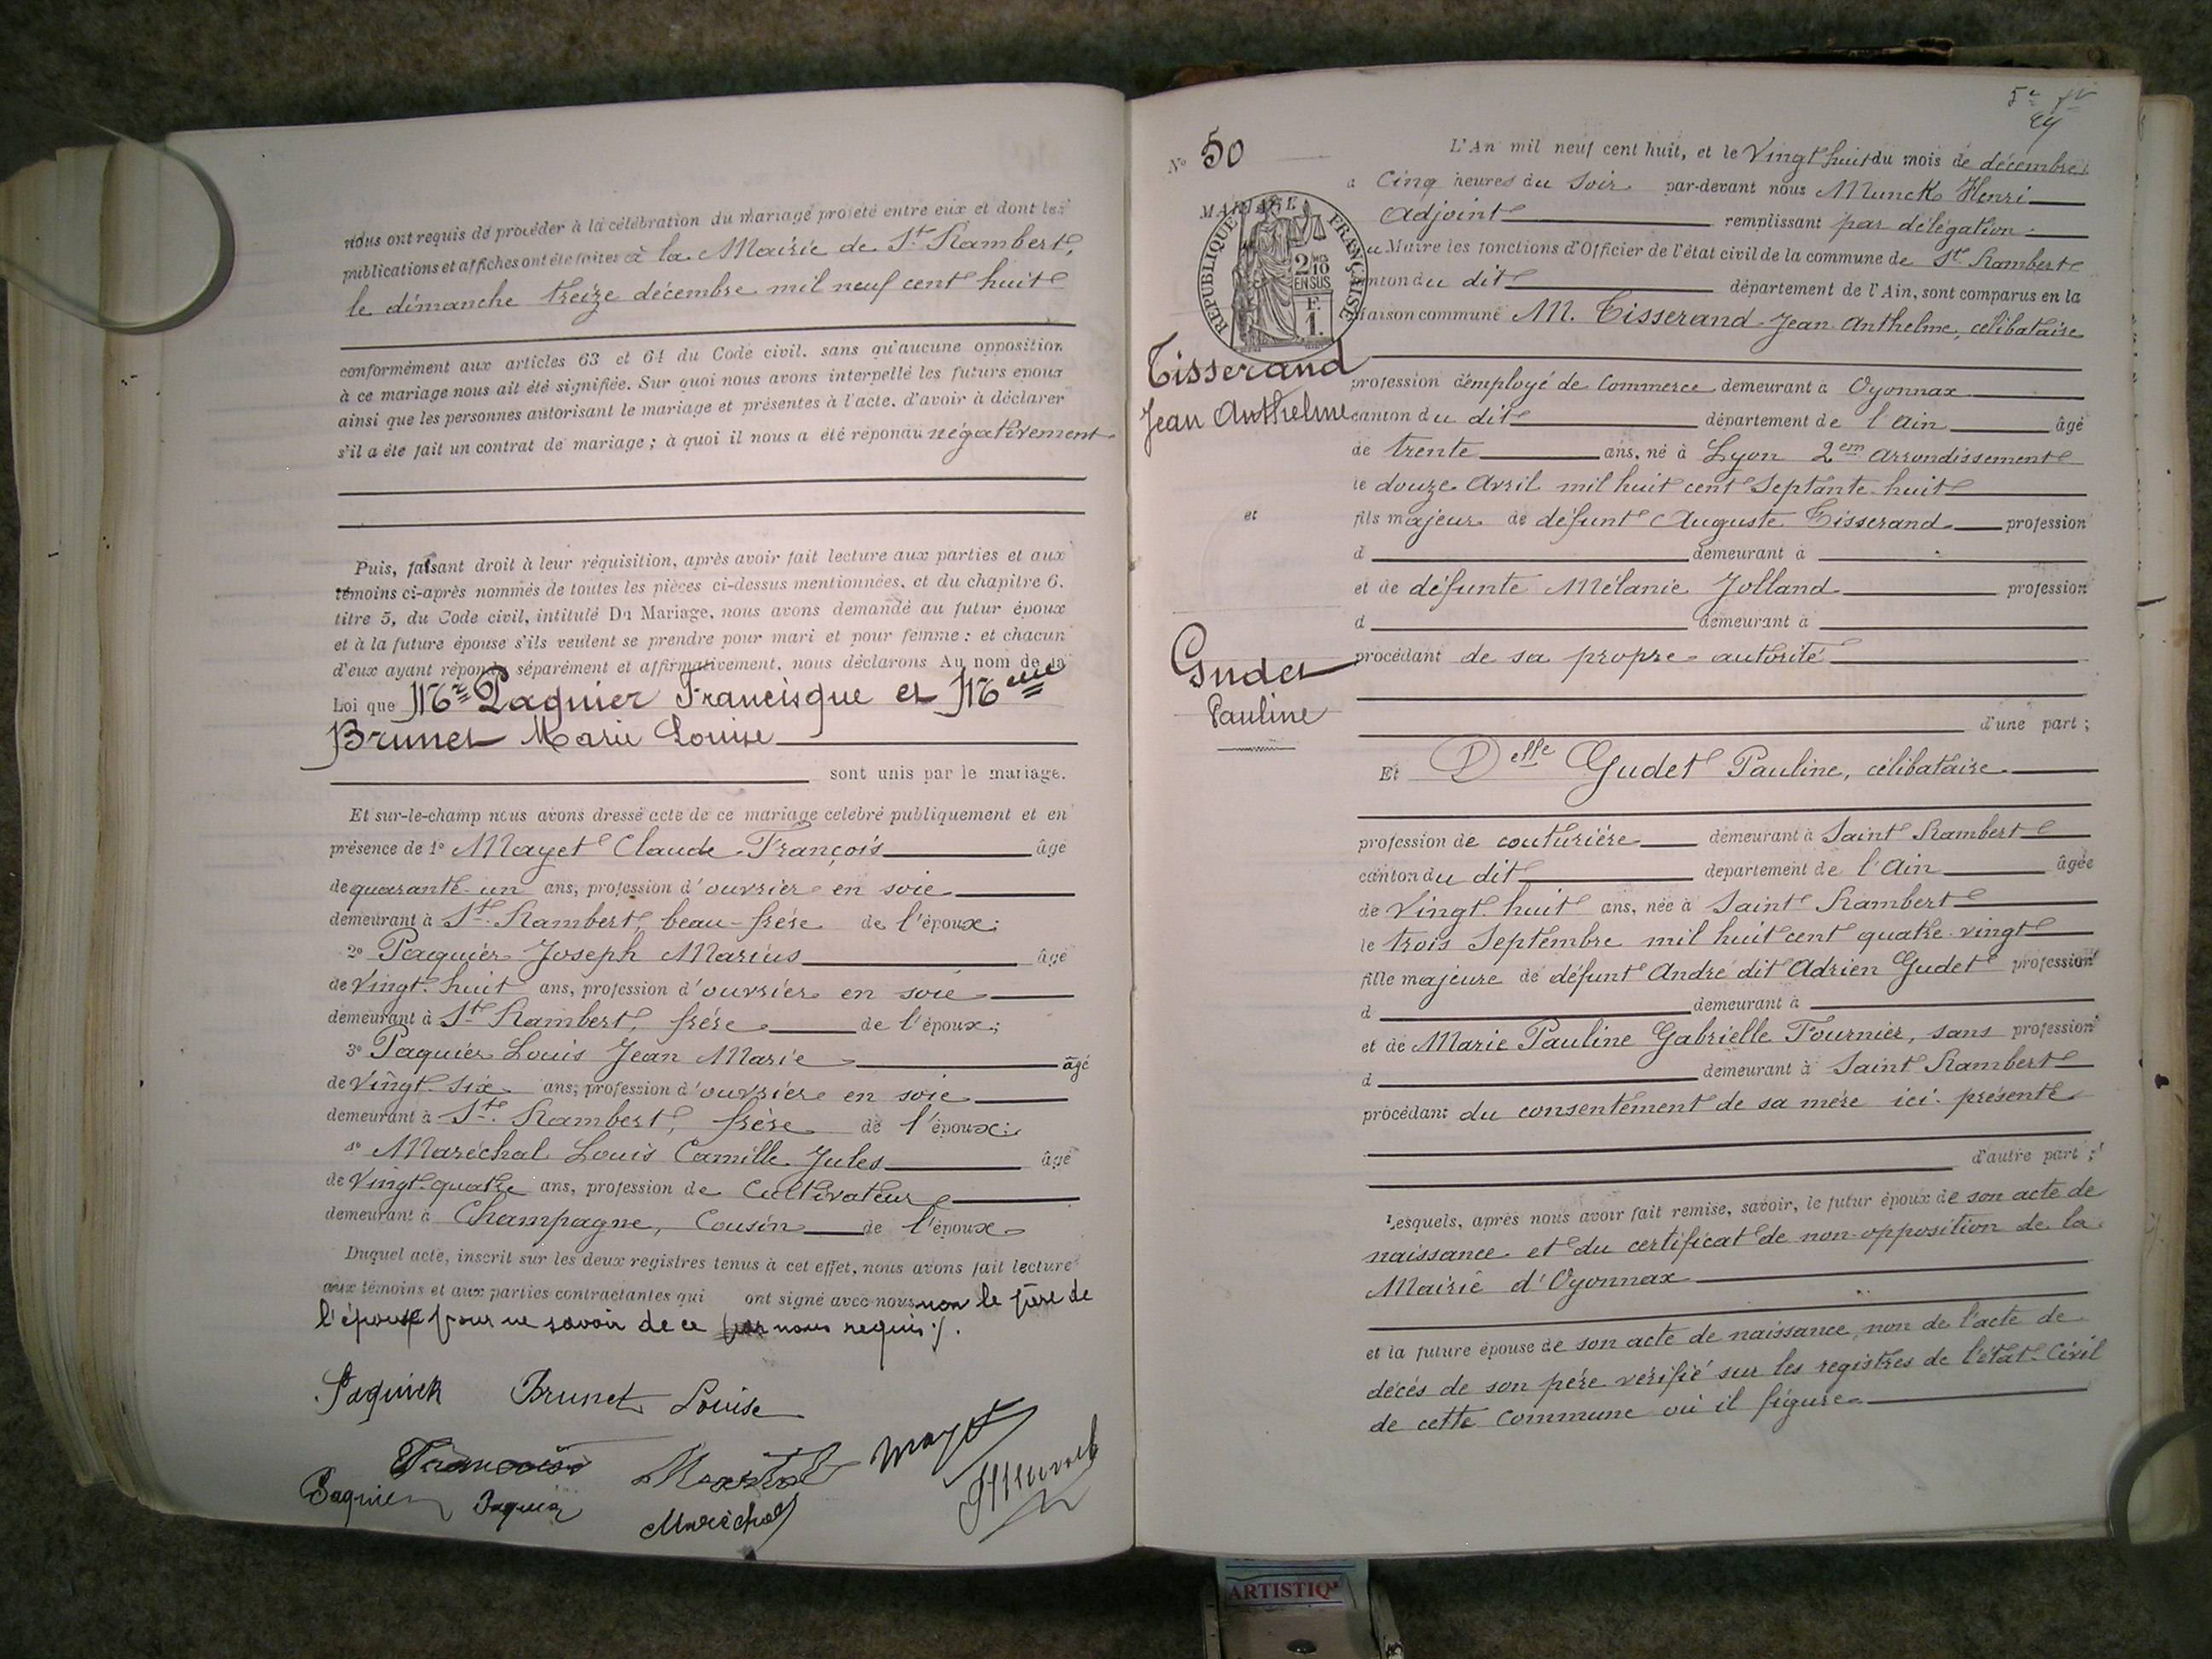 nous ont requis de procéder à la célébration du mariage projeté entre eux et dont les
publications et affiches ont été faites à la Mairie de St. Rambert,
le dimanche treize décembre mil neuf cent huit
conformément aux articles 63 et 64 du Code civil. sans qu'aucune opposition
à ce mariage nous ait été signifiée. Sur quoi nous avons interpellé les futurs epoux
ainsi que les personnes autorisant le mariage et présentes à l'acte. d'avoir à déclarer
s'il a été fait un contrat de mariage ; à quoi il nous a été répondu négativement
Puis, faisant droit à leur réquisition, après avoir fait lecture aux parties et aux
témoins ci-après nommés de toutes les pièces ci-dessus mentionnées. et du chapitre 6.
titre 5, du Code civil, intitulé Du Mariage, nous avons demandé au futur époux
et à la future épouse s'ils veulent se prendre pour mari et pour femme : et chacun
d'eux ayant répondu séparément et affirmativement, nous déclarons Au nom de la
Loi que Mr Paquier Francisque et Melle
Brunet Marie Louise
sont unis par le mariage.
Et sur-le-champ nous avons dressé acte de ce mariage celebré publiquement et en
présence de 1° Mayet Claude François âgé
de quarante-un ans, profession d'ouvrier en soie
demeurant à St. Rambert, beau-frère de l'époux;
2° Paquier Joseph Marius âgé
de Vingt-huit ans, profession d'ouvrier en soie
demeurant à St Rambert, frère de l'époux;
3° Paquier Louis Jean Marie âgé
de Vingt-six ans, profession d'ouvrier en soie
demeurant à St. Rambert, frère de l'époux;
4° Maréchal Louis Camille Jules âgé
de Vingt-quatre ans, profession de Cultivateur
demeurant à Champagne, Cousin de l'époux
Duquel acte, inscrit sur les deux registres tenus à cet effet, nous avons fait lecture
aux témoins et aux parties contractantes qui ont signé avec nous non le père de
l'épouse pour ne savoir de ce par nous requis ./.
Paquier Brunet Louise
François Mayet
Paquier Paquier Maréchal
HMunck
ARTISTIQ
N° 50
MARIAGE
RÉPUBLIQUE FRANÇAISE
2 10
EN SUS
F.
1.
Tisserand
Jean Anthelme
et
Gudet
Pauline
L'An mil neuf cent huit, et le Vingt huit du mois de décembre
a Cinq heures du Soir par-devant nous Munck Henri
Adjoint remplissant par délégation
du Maire les fonctions d'Officier de l'état civil de la commune de St. Rambert
canton du dit département de l'Ain, sont comparus en la
maison commune M. Tisserand Jean Anthelme, célibataire
profession d'employé de Commerce demeurant à Oyonnax
canton du dit département de l'Ain âgé
de trente ans, né à Lyon 2em arrondissement
le douze Avril mil huit cent Septante-huit
fils majeur de défunt Auguste Tisserand profession
d demeurant à
et de défunte Mélanie Jolland profession
d demeurant à
procédant de sa propre autorité
d'une part ;
Et Delle Gudet Pauline, célibataire
profession de couturière demeurant à Saint Rambert
canton du dit departement de l'Ain âgée
de Vingt-huit ans, née à Saint Rambert
le trois Septembre mil huit cent quatre-vingt
fille majeure de défunt André dit Adrien Gudet profession
d demeurant à
et de Marie Pauline Gabrielle Fournier, sans profession
d demeurant à Saint Rambert
procédant du consentement de sa mère ici présente
d'autre part ;
Lesquels, après nous avoir fait remise, savoir, le futur époux de son acte de
naissance et du certificat de non-opposition de la
Mairie d'Oyonnax
et la future épouse de son acte de naissance, non de l'acte de
décès de son père vérifié sur les registres de l'état-Civil
de cette Commune où il figure